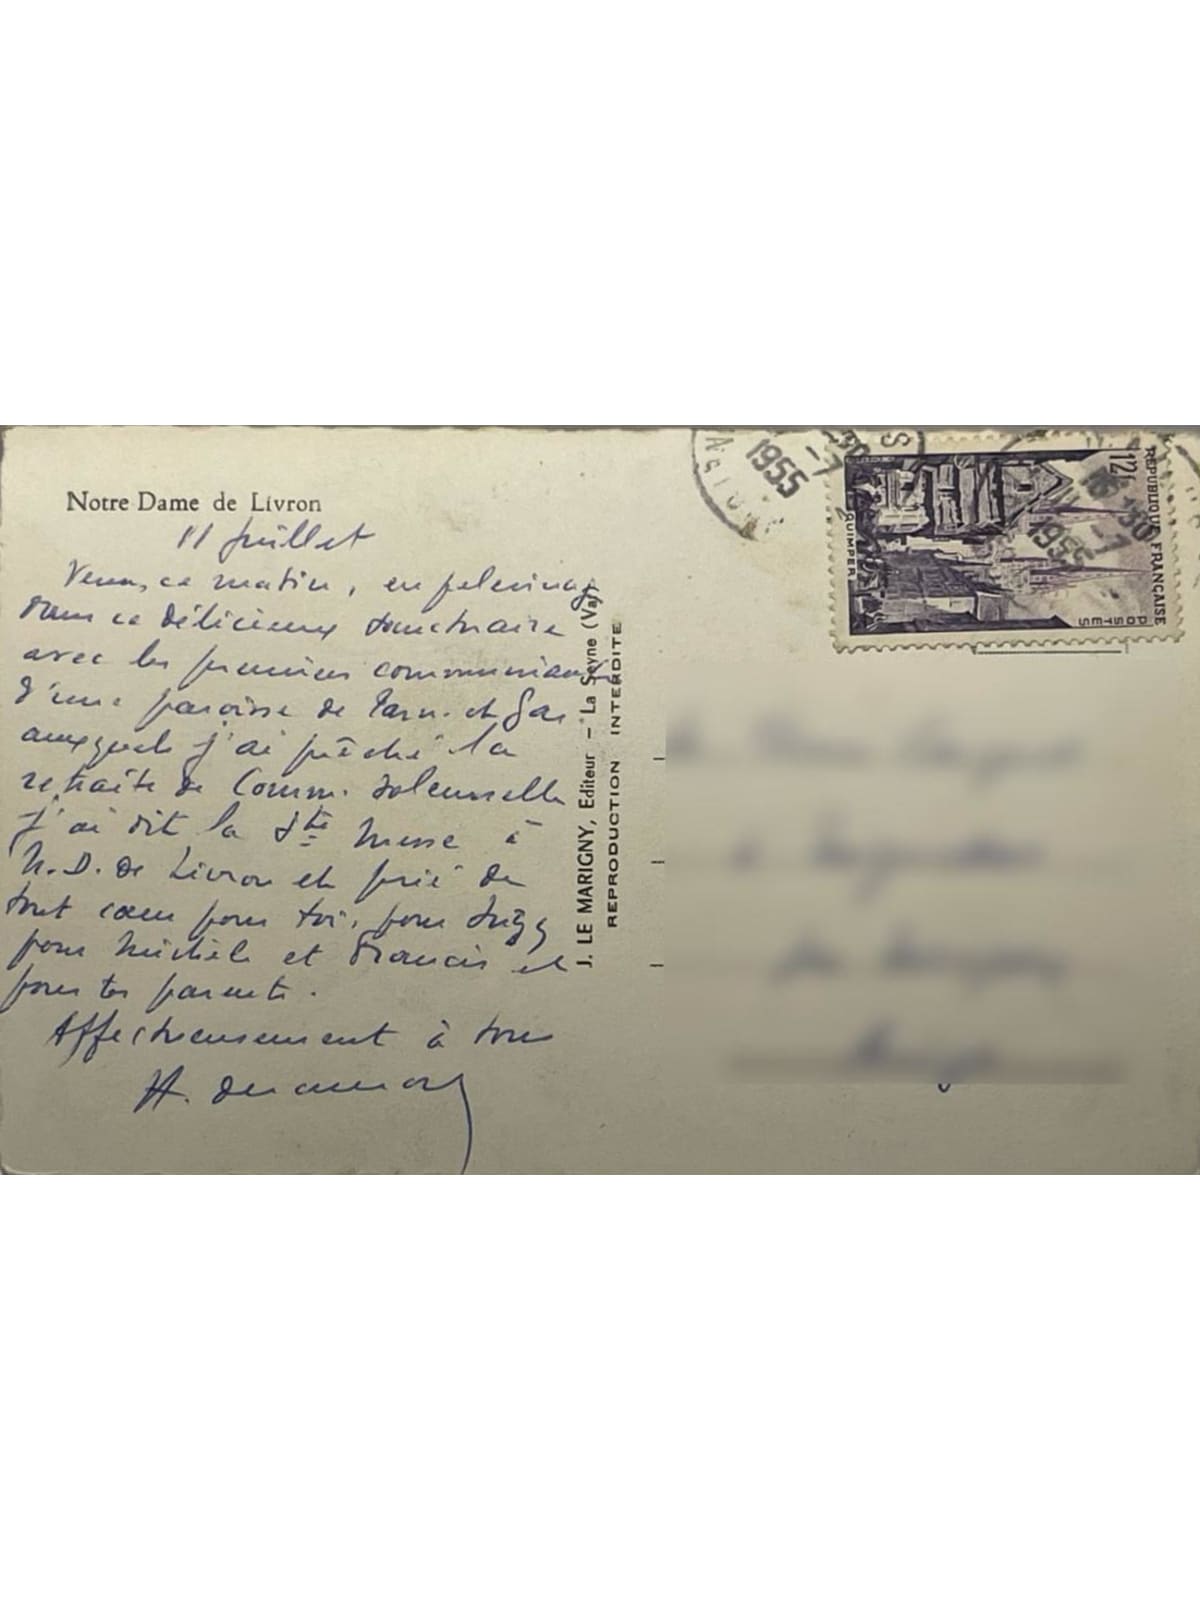 Notre-Dame de Livron
11 juillet
Venu, ce matin, en pelerinage
dans ce délicieux sanctuaire
avec les premiers communiants
d'une paroisse de Tarn-et-Gar
auxquels j'ai prêché la
retraite de Comm. solennelle
j'ai dit la Ste Messe à
N.D. de Livron et prié de
tout cœur pour toi, pour Suzy
pour Michèle et Francis et
pour tes parents.
Affectueusement à tous
J. LE MARIGNY, Editeur - La Seyne (Var)
REPRODUCTION INTERDITE
1955
-7
REPUBLIQUE FRANÇAISE
POSTES
12f
QUIMPER
16 30
-7
1955